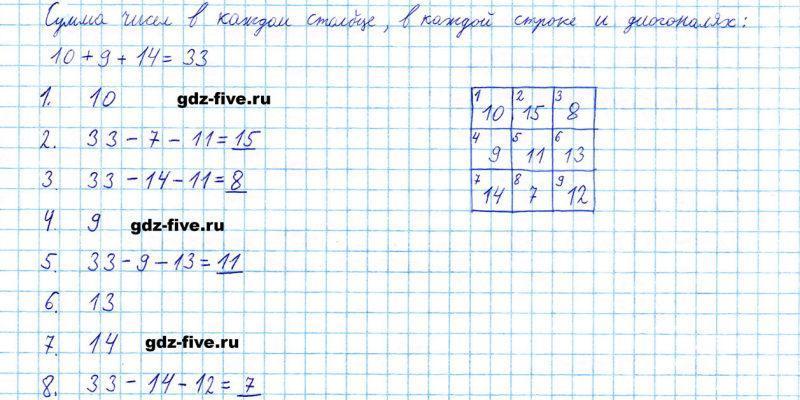 Сумма чисел в каждом столбце, в каждой строке и диагоналях:
10 + 9 + 14 = 33
1. 10
gdz-five.ru
2. 33 - 7 - 11 = 15
3. 33 - 14 - 11 = 8
4. 9
gdz-five.ru
5. 33 - 9 - 13 = 11
6. 13
7. 14
gdz-five.ru
8. 33 - 14 - 12 = 7
1 10 2 15 3 8
4 9 5 11 6 13
7 14 8 7 9 12